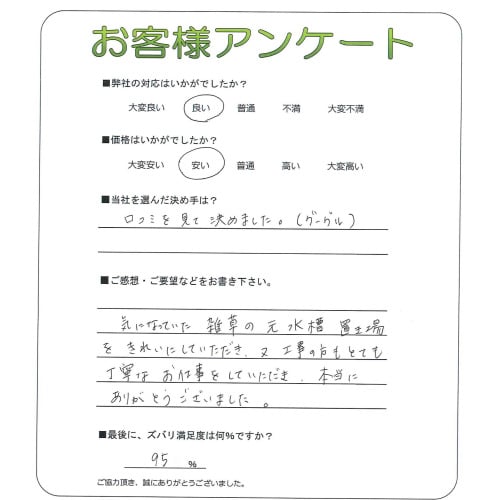 お客様アンケート
■弊社の対応はいかがでしたか？
大変良い 良い 普通 不満 大変不満
■価格はいかがでしたか？
大変安い 安い 普通 高い 大変高い
■当社を選んだ決め手は？
口コミを見て決めました。(グーグル)
■ご感想・ご要望などをお書き下さい。
気になっていた 雑草の元水槽置き場
をきれいにしていただき、又工事の方もとても
丁寧なお仕事をしていただき、本当に
ありがとうございました。
■最後に、ズバリ満足度は何％ですか？
95 %
ご協力頂き、誠にありがとうございました。